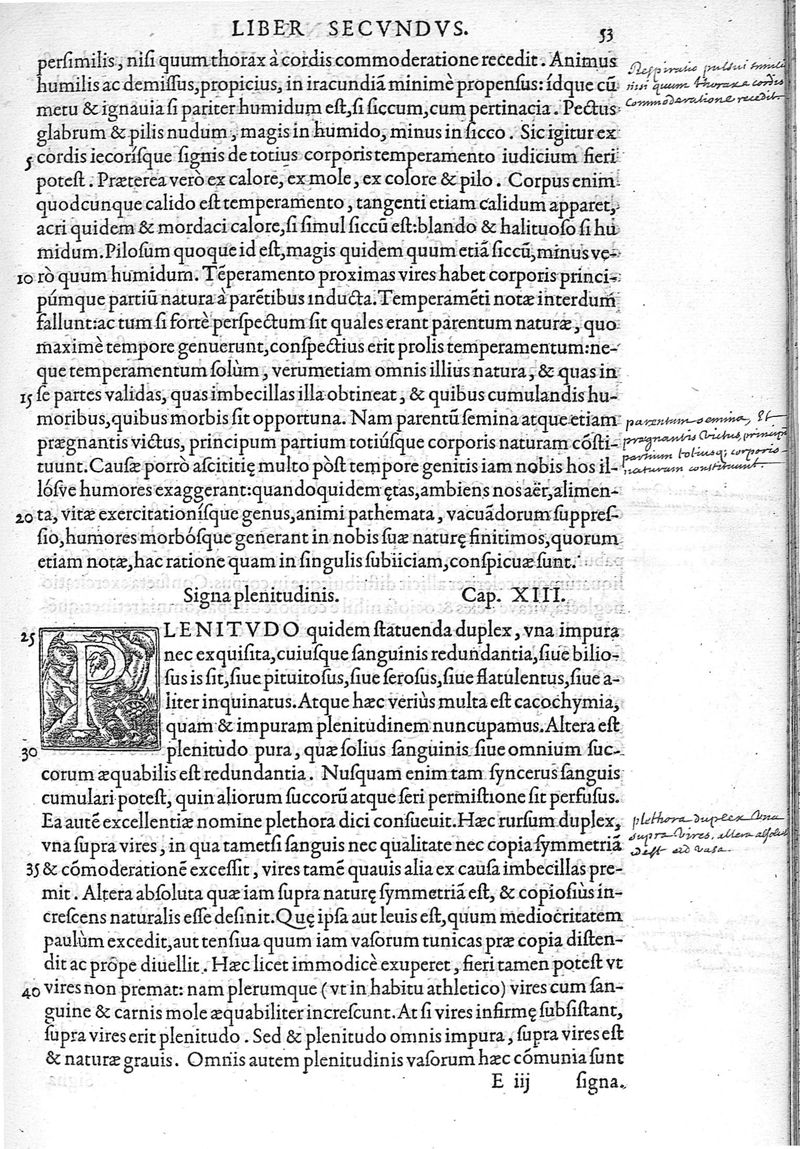 LIBER SECVNDVS. 53
persimilis, nisi quum thorax à cordis commoderatione recedit. Animus
humilis ac demissus, propicius, in iracundiã minimè propensus: ídque cũ
metu & ignauia si pariter humidum est, si siccum, cum pertinacia. Pectus
glabrum & pilis nudum, magis in humido, minus in sicco. Sic igitur ex
5 cordis iecorísque signis de totius corporis temperamento iudicium fieri
potest. Præterea verò ex calore, ex mole, ex colore & pilo. Corpus enim
quodcunque calido est temperamento, tangenti etiam calidum apparet,
acri quidem & mordaci calore, si simul siccũ est: blando & halituoso si hu
midum. Pilosum quoque id est, magis quidem quum etiã siccũ, minus ve-
10 rò quum humidum. Tẽperamento proximas vires habet corporis princi-
púmque partiũ natura à parẽtibus inducta. Temperamẽti notæ interdum
fallunt: ac tum si fortè perspectum sit quales erant parentum naturæ, quo
maximè tempore genuerunt, conspectius erit prolis temperamentum: ne-
que temperamentum solùm, verumetiam omnis illius natura, & quas in
15 se partes validas, quas imbecillas illa obtineat, & quibus cumulandis hu-
moribus, quibus morbis sit opportuna. Nam parentũ semina atque etiam
prægnantis victus, principum partium totiúsque corporis naturam cõsti-
tuunt. Causæ porrò ascititię multo pòst tempore genitis iam nobis hos il-
lósve humores exaggerant: quandoquidem ętas, ambiens nos aër, alimen-
20 ta, vitæ exercitationísque genus, animi pathemata, vacuãdorum suppres-
sio, humores morbósque generant in nobis suæ naturę finitimos, quorum
etiam notæ, hac ratione quam in singulis subiiciam, conspicuæ sunt.
Signa plenitudinis. Cap. XIII.
25 PLENITVDO quidem statuenda duplex, vna impura
nec exquisita, cuiusque sanguinis redundantia, siue bilio-
sus is sit, siue pituitosus, siue serosus, siue flatulentus, siue a-
liter inquinatus. Atque hæc veriùs multa est cacochymia,
quam & impuram plenitudinem nuncupamus. Altera est
30 plenitudo pura, quæ solius sanguinis siue omnium suc-
corum æquabilis est redundantia. Nusquam enim tam syncerus sanguis
cumulari potest, quin aliorum succorũ atque seri permistione sit perfusus.
Ea autẽ excellentiæ nomine plethora dici consueuit. Hæc rursum duplex,
vna supra vires, in qua tametsi sanguis nec qualitate nec copia symmetriã
35 & cõmoderationẽ excessit, vires tamẽ quauis alia ex causa imbecillas pre-
mit. Altera absoluta quæ iam supra naturę symmetriã est, & copiosiùs in-
crescens naturalis esse desinit. Quę ipsa aut leuis est, quum mediocritatem
paulùm excedit, aut tensiua quum iam vasorum tunicas præ copia disten-
dit ac propè diuellit. Hæc licet immodicè exuperet, fieri tamen potest vt
40 vires non premat: nam plerumque (vt in habitu athletico) vires cum san-
guine & carnis mole æquabiliter increscunt. At si vires infirmę subsistant,
supra vires erit plenitudo. Sed & plenitudo omnis impura, supra vires est
& naturæ grauis. Omnis autem plenitudinis vasorum hæc cõmunia sunt
E iij signa.
Respiratio pulsui simil
nisi quum thorax cordis
commoderatione recedit.
parentum semina, et
prægnantis victus, principum
partium totiusq; corporis
naturam constituunt.
plethora duplex una
supra vires, altera absolut
 ad vasa.